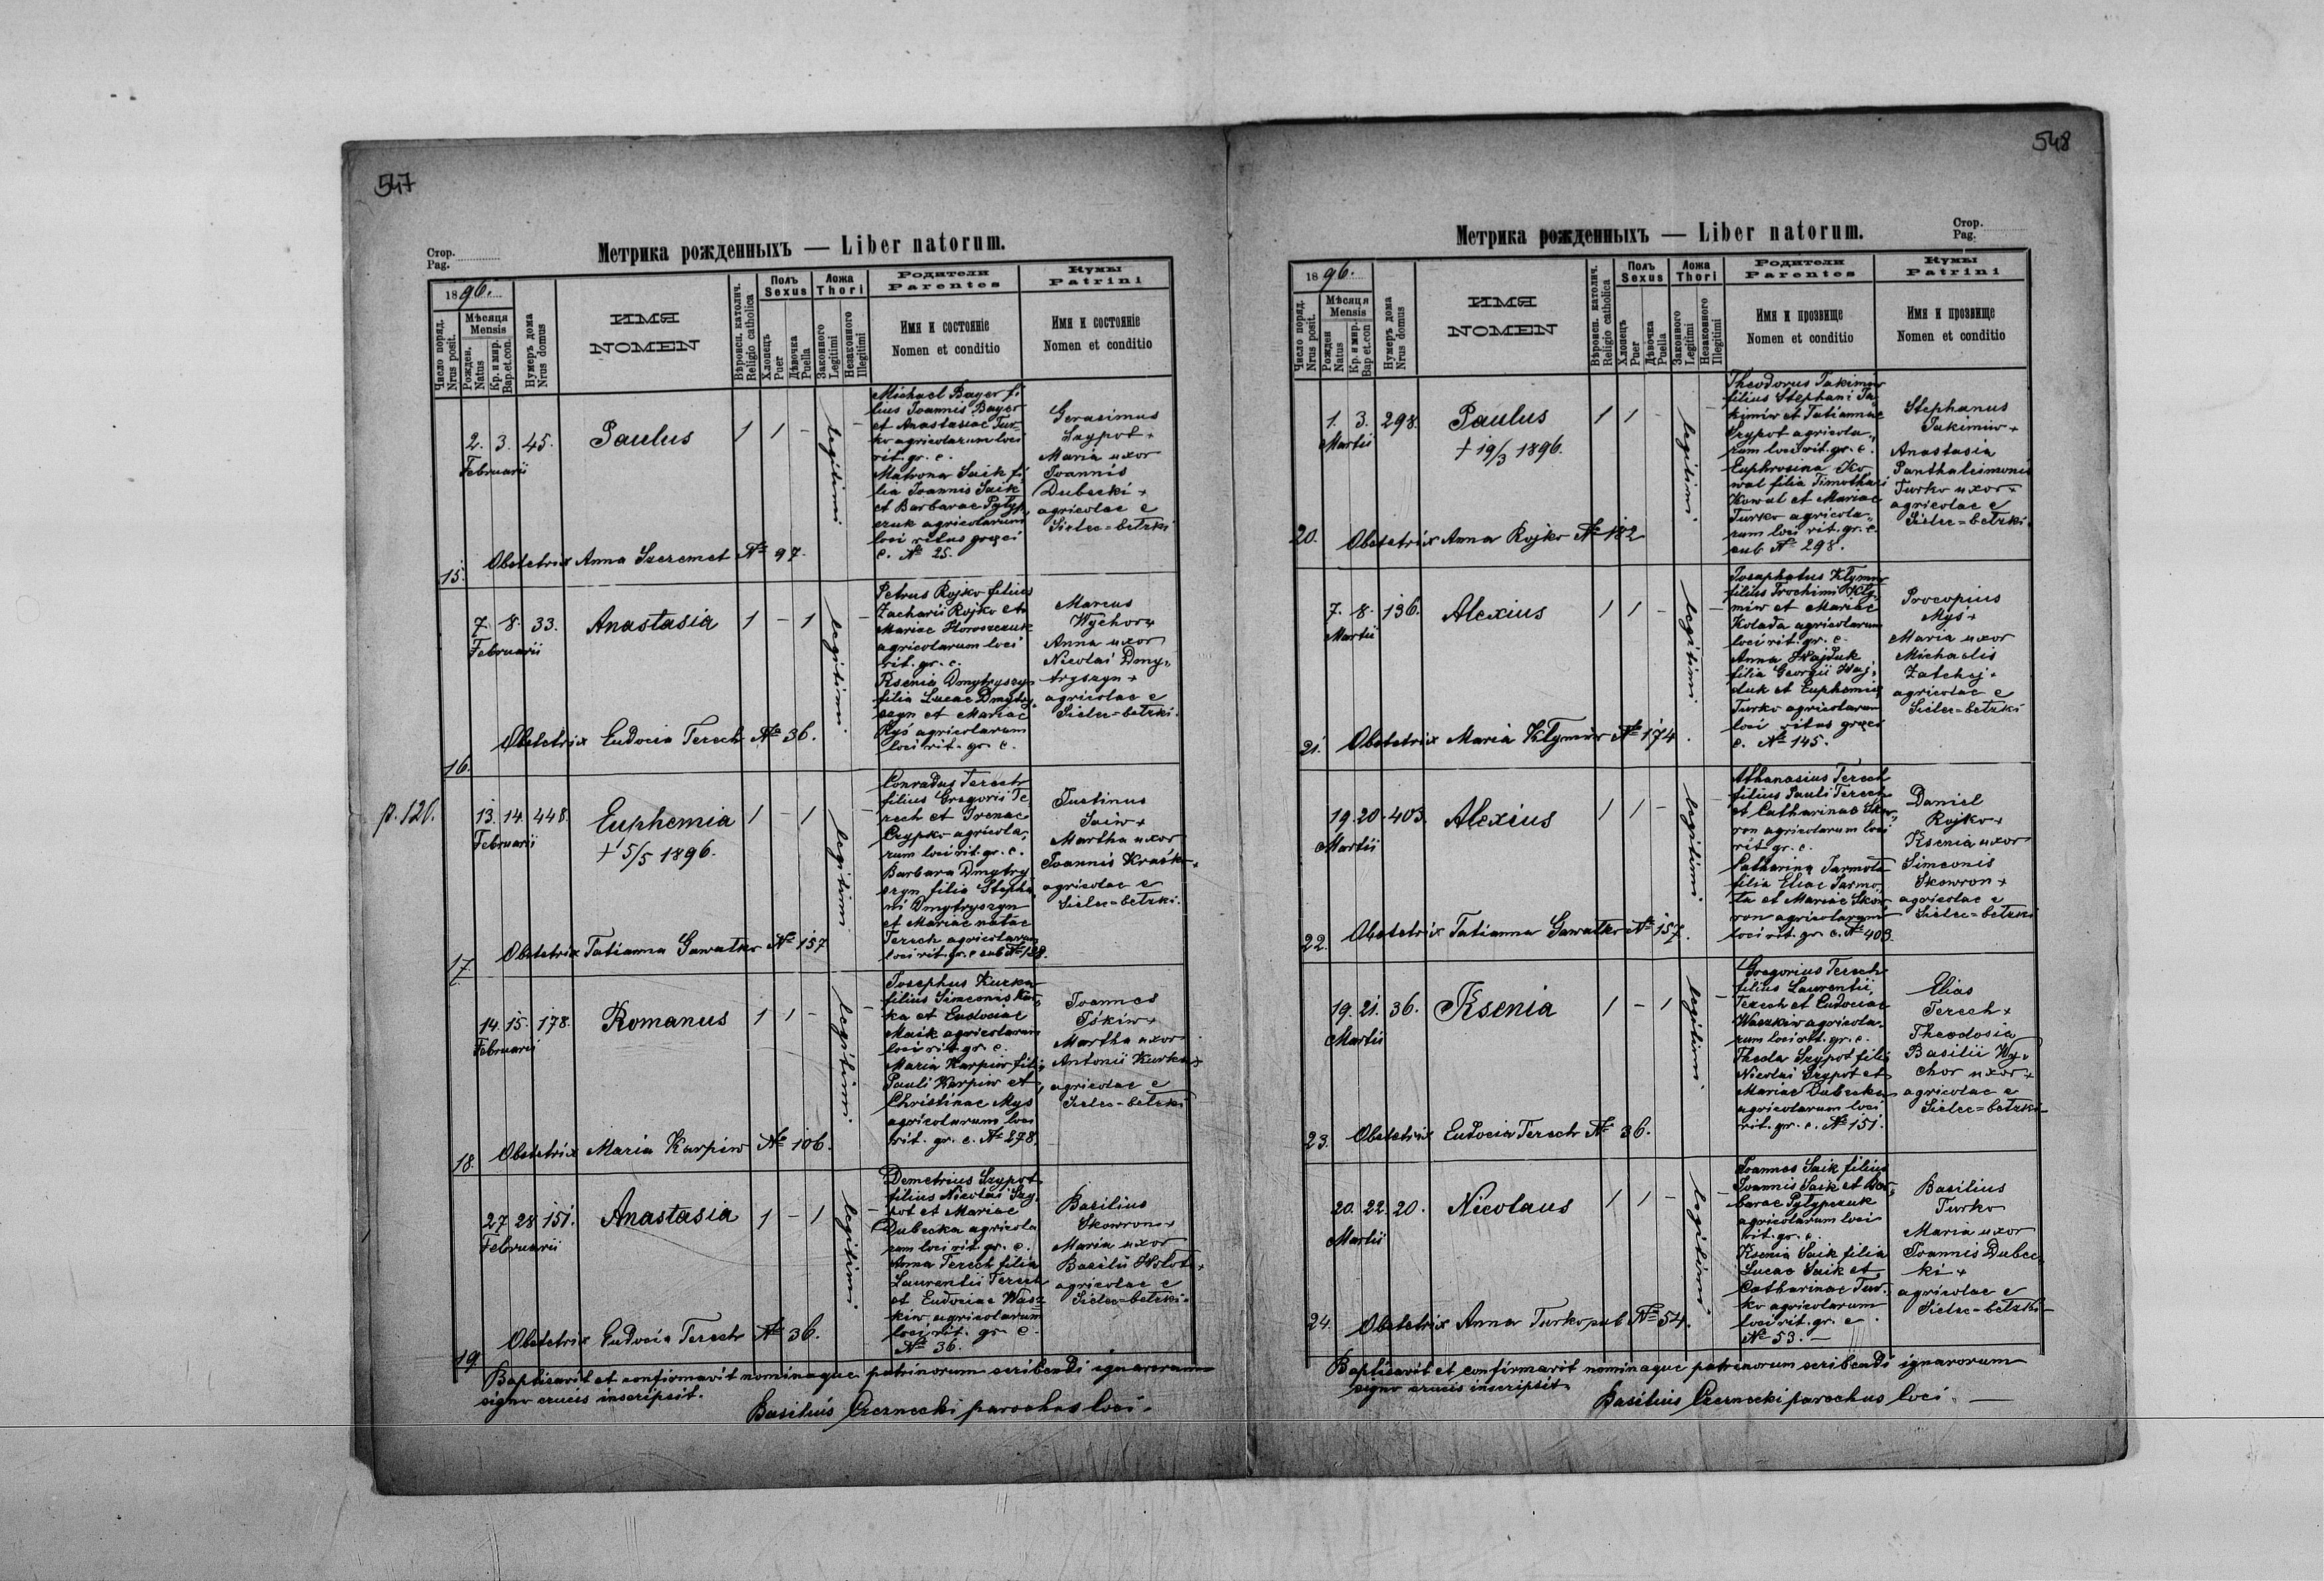 547
Стор.
Pag.
Метрика рожденныхъ — Liber natorum.
1896.
Число поряд.
Nrus posit.
Мѣсяця
Mensis
Рожден.
Natus
Кр. и мир.
Bap.et.con.
Нумеръ дома
Nrus domus
ИМЯ
NOMEN
Вѣроисп. католич.
Religio catholica
Полъ
Sexus
Хлопецъ
Puer
Дѣвочка
Puella
Ложа
Thori
Законного
Legitimi
Незаконного
Illegitimi
Родители
Parentes
Имя и состояніе
Nomen et conditio
Кумы
Patrini
Имя и состояніе
Nomen et conditio
15.
2. 3. 45.
Februarii
Paulus
1 1 -
legitimi
-
Michael Bayer fi
lius Joannis Bayer
et Anastasiae Tur-
ko agricolarum loci
rit. gr. c.
Matrona Saik fi
lia Joannis Saik
et Barbarae Pylyp
czuk agricolarum
loci ritus graeci
c. № 25.
Gerasimus
Szypot +
Maria uxor
Joannis
Dubecki +
agricolae e
Sielec=bełzki
Obstetrix Anna Szeremet № 97.
16.
7. 8. 33.
Februarii
Anastasia
1 - 1
legitimi
-
Petrus Rojko filius
Zacharii Rojko et
Mariae Horoszczuk
agricolarum loci
rit. gr. c.
Ksenia Dmytryszyn
filia Lucae Dmytry
szyn et Mariae
Ryś agricolarum
loci rit. gr. c.
Marcus
Wychor +
Anna uxor
Nicolai Dmy„
tryszyn +
agricolae e
Sielec=bełzki.
Obstetrix Eudocia Terech № 36.
p. 120.
17.
13. 14. 448.
Februarii
Euphemia
+ 5/5 1896.
1 - 1
legitimi
-
Conradus Terech
filius Gregorii Te
rech et Irenae
Czypko agricola„
rum loci rit. gr. c.
Barbara Dmytry
szyn filia Stepha
ni Dmytryszyn
et Mariae natae
Terech agricolarum
loci rit. gr. c sub № 128.
Justinus
Saiw +
Martha uxor
Joannis Kraśko +
agricolae e
Sielec=bełzki.
Obstetrix Tatianna Gawałko № 157
18.
14. 15. 178.
Februarii
Romanus
1 1 -
legitimi
-
Josephus Kurka
filius Simeonis Kur
ka et Eudociae
Maik agricolarum
loci rit gr. c.
Maria Karpiw fili„
Pauli Karpiw et
Christinae Myś
agricolarum loci
rit. gr. c. № 278.
Joannes
Iśkiw +
Martha uxor
Antonii Kurka +
agricolae e
Sielec=bełzki
Obstetrix Maria Karpiw № 106.
19.
27 28 151.
Februarii
Anastasia
1 - 1
legitimi
-
Demetrius Szypot
filius Nicolai Szy
pot et Mariae
Dubecka agricola
rum loci rit. gr. c.
Anna Terech filia
Laurentii Terech
et Eudociae Wasz
kiw agricolarum
loci rit. gr. c.
№ 36.
Basilius
Skowron +
Maria uxor
Basilii Hołot +
agricolae e
Sielec=bełzki.
Obstetrix Eudocia Terech № 36.
Baptisavit et confirmavit nominaque patrinorum scribendi ignarorum
signo crucis inscripsit.
Basilius Czernecki parochus loci.
548
Стор.
Pag.
Метрика рожденныхъ — Liber natorum.
1896.
Число поряд.
Nrus posit.
Мѣсяця
Mensis
Рожден
Natus
Кр. и мир.
Bap et.con
Нумеръ дома
Nrus domus
ИМЯ
NOMEN
Вѣроисп. католич.
Religio catholica
Полъ
Sexus
Хлопецъ
Puer
Дѣвочка
Puella
Ложа
Thori
Законного
Legitimi
Незаконного
Illegitimi
Родители
Parentes
Имя и прозвище
Nomen et conditio
Кумы
Patrini
Имя и прозвище
Nomen et conditio
20.
1. 3. 298.
Martii
Paulus
+ 19/3 1896.
1 1 -
legitimi
-
Theodorus Jakimiw
filius Stephani Ja
kimiw et Tatiannae
Szypot agricola„
rum loci rit. gr. c.
Euphrosina Ko
wal filia Timothaei
Kowal et Mariae
Turko agricola„
rum loci rit. gr. c.
sub № 298.
Stephanus
Jakimiw +
Anastasia
Panthaleimonis
Turko uxor +
agricolae e
Sielec=bełzki.
Obstetrix Anna Rojko № 182
21.
7. 8. 136.
Martii
Alexius
1 1 -
legitimi
-
Josaphatus Kłymiw
filius Trochimi Kły
miw et Mariae
Kolada agricolarum
loci rit. gr. c.
Anna Hajduk
filia Georgii Haj
duk et Euphemiae
Turko agricolarum
loci ritus graeci
c. № 145.
Procopius
Myś +
Maria uxor
Michaelis
Zatchej +
agricolae e
Sielec=bełzki
Obstetrix Maria Kłymiw № 174.
22.
19. 20. 403.
Martii
Alexius
1 1 -
legitimi
Athanasius Terech
filius Pauli Terech
et Catharinae Skow„
ron agricolarum loci
rit gr. c.
Catharina Jarmoła
filia Eliae Jarmo„
ła et Mariae Skow
ron agricolarum
loci rit. gr. c. № 403.
Daniel
Rojko +
Ksenia uxor
Simeonis
Skowron +
agricolae e
Sielec=bełzki
Obstetrix Tatianna Gawałko № 157.
23.
19. 21. 36.
Martii
Ksenia
1 - 1
legitimi
-
Gregorius Terech
filius Laurentii
Terech et Eudociae
Waszkiw agricola„
rum loci rit. gr. c.
Thecla Szypot filia
Nicolai Szypot et
Mariae Dubecka
agricolarum loci
rit. gr. c. № 151.
Elias
Terech +
Theodosia
Basilii Wy„
chor uxor +
agricolae e
Sielec=bełzki
Obstetrix Eudocia Terech № 36.
24.
20. 22. 20.
Martii
Nicolaus
1 1 -
legitimi
-
Joannes Saik filius
Joannis Saik et Bar„
barae Pylypczuk
agricolarum loci
rit. gr. c.
Ksenia Saik filia
Lucae Saik et
Catharinae Tur„
ko agricolarum
loci rit. gr. c.
№ 53. —
Basilius
Turko
Maria uxor
Joannis Dubec„
ki +
agricolae e
Sielec=bełzki
Obstetrix Anna Turko sub № 54.
Baptisavit et confirmavit nominaque patrinorum scribendi ignarorum
signo crucis inscripsit.
Basilius Czernecki parochus loci. —